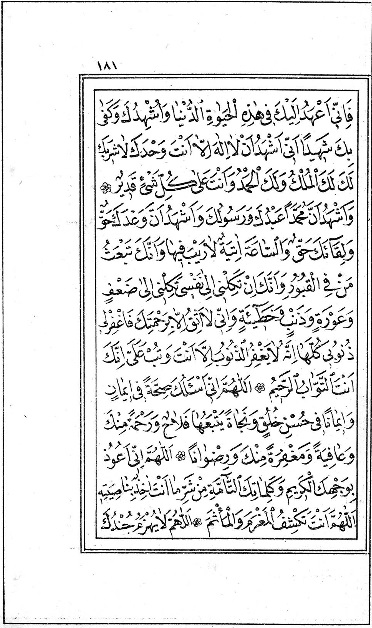 ١٨١
فَاِنّ۪ى اَعْهَدُ اِلَيْكَ فِى هٰذِهِ الْحَيٰوةِ الدُّنْيَا وَاُشْهِدُكَ وَكَفٰى
بِكَ شَه۪يدًا اَنّ۪ى اَشْهَدُ اَنْ لَا اِلٰهَ اِلَّا اَنْتَ وَحْدَكَ لَا شَر۪يكَ
لَكَ لَكَ الْمُلْكُ وَلَكَ الْحَمْدُ وَاَنْتَ عَلٰى كُلِّ شَىْءٍ قَد۪يرٌ ❊
وَاَشْهَدُ اَنَّ مُحَمَّدًا عَبْدُكَ وَرَسُولُكَ وَاَشْهَدُ اَنَّ وَعْدَكَ حَقٌّ
وَلِقَائَكَ حَقٌّ وَالسَّاعَةَ اٰتِيَةٌ لَا رَيْبَ ف۪يهَا وَاَنَّكَ تَبْعَثُ
مَنْ فِى الْقُبُورِ وَاَنَّكَ اِنْ تَكِلْن۪ى اِلٰى نَفْس۪ى تَكِلْن۪ى اِلٰى ضَعْفٍ
وَعَوْرَةٍ وَذَنْبٍ وَخَط۪يئَةٍ وَاِنّ۪ى لَا اَثِقُ اِلَّا بِرَحْمَتِكَ فَاغْفِرْ ل۪ى
ذُنُوب۪ى كُلَّهَا اِنَّهُ لَا يَغْفِرُ الذُّنُوبَ اِلَّا اَنْتَ وَتُبْ عَلَىَّ اِنَّكَ
اَنْتَ التَّوَّابُ الرَّح۪يمُ ❊ اَللّٰهُمَّ اِنّ۪ى اَسْئَلُكَ صِحَّةً ف۪ى ا۪يمَانٍ
وَا۪يمَانًا ف۪ى حُسْنِ خُلُقٍ وَنَجَاةً يَتْبَعُهَا فَلَاحٌ وَرَحْمَةً مِنْكَ
وَعَافِيَةً وَمَغْفِرَةً مِنْكَ وَرِضْوَانًا ❊ اَللّٰهُمَّ اِنّ۪ى اَعُوذُ
بِوَجْهِكَ الْكَر۪يمِ وَكَلِمَاتِكَ التَّامَّةِ مِنْ شَرِّ مَا اَنْتَ اٰخِذٌ بِنَاصِيَتِه۪
اَللّٰهُمَّ اَنْتَ تَكْشِفُ الْمَغْرَمَ وَالْمَأْثَمَ ❊ اَللّٰهُمَّ لَا يُهْزَمُ جُنْدُكَ